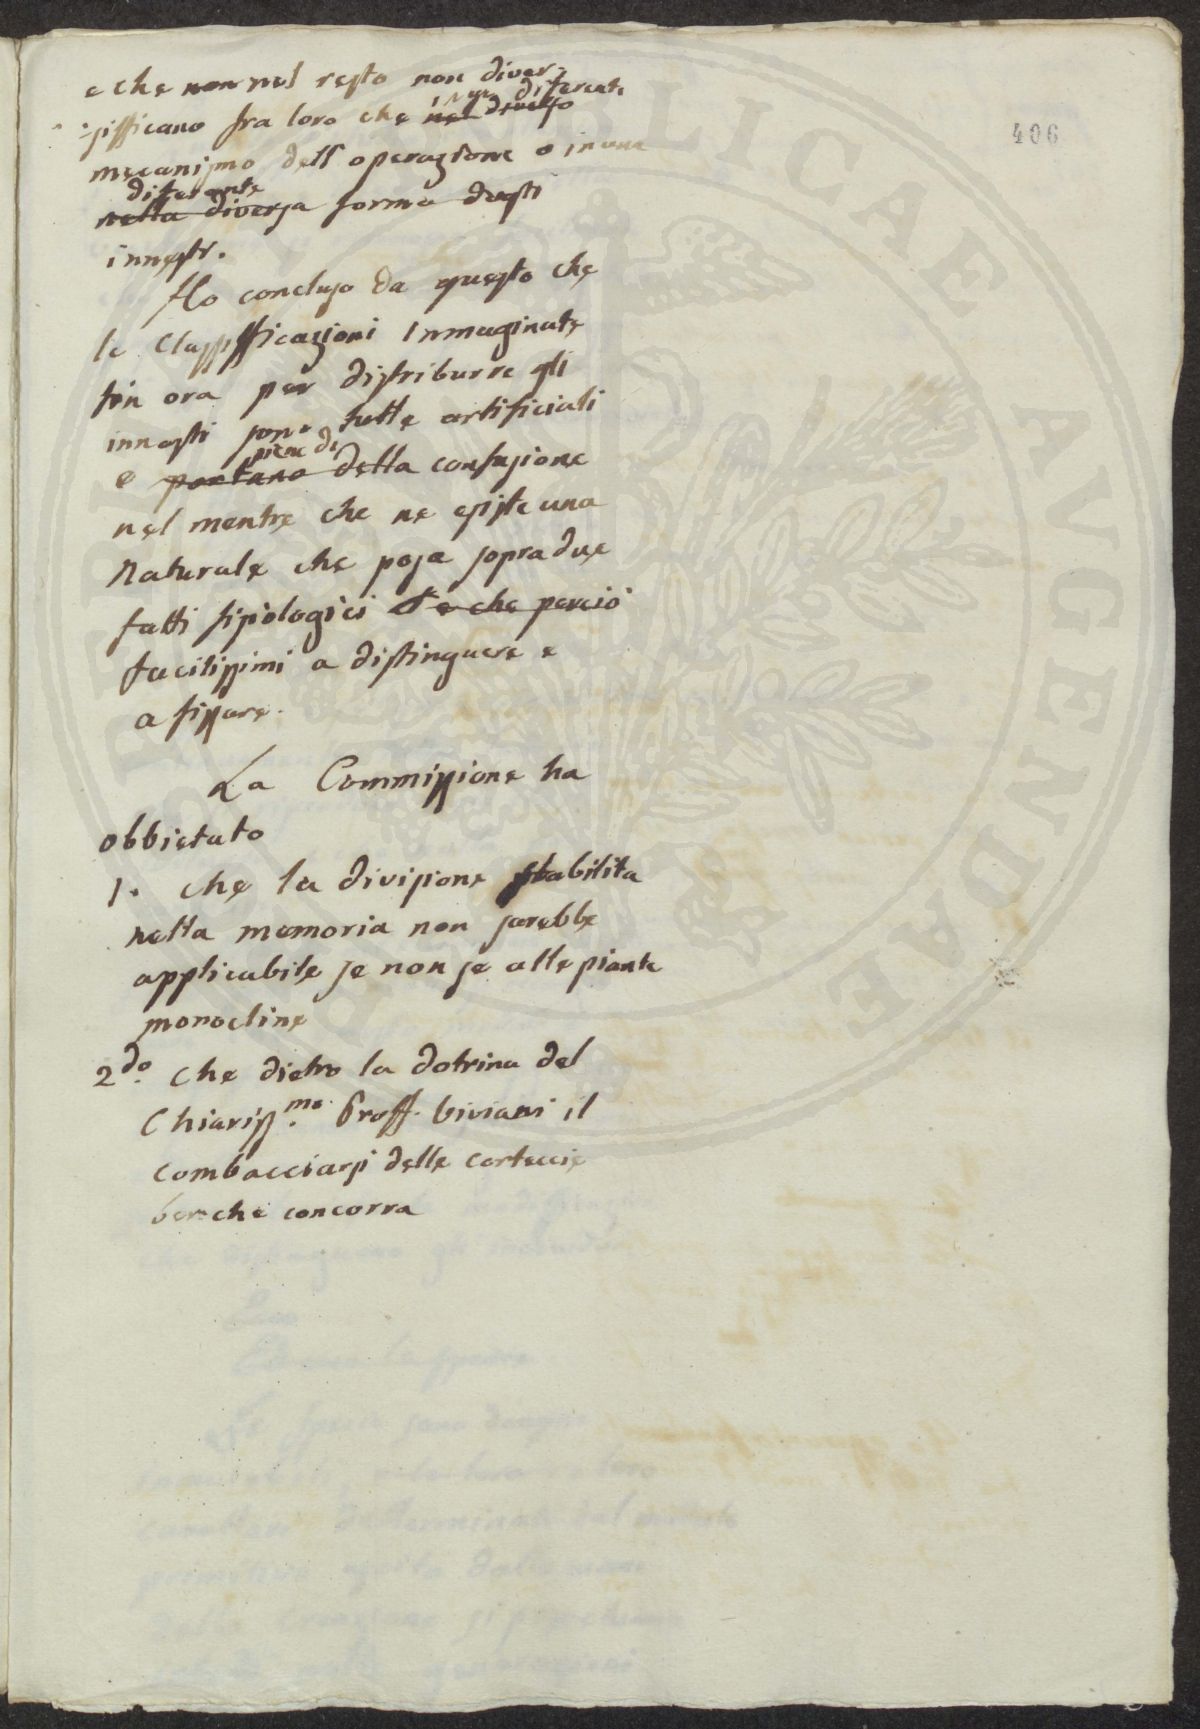 406
e che non nel resto non diver-
-sifficano fra loro che nel diverso in un diferente
mecanismo dell'operazione o in una
nella diversa diferente forma degli
innesti.
Ho concluso da questo che
le Classifficazioni Immaginate
fin ora per distriburre gli
innesti sono tutte artificiali
e portano della piene di confusione
nel mentre che ne esiste una
Naturale che posa sopra due
fatti fisiologici e che perciò
facilissimi a distinguere e
a fissare.
La Commissione ha
obbietato
1. che la divisione stabilita
nella memoria non sarebbe
applicabile se non se alle piante
monocline
2do. Che dietro la dotrina del
Chiariss.mo Proff. Viviani il
combacciarsi delle corteccie
benche concorra
RE PUBLICAE AUGENDAE